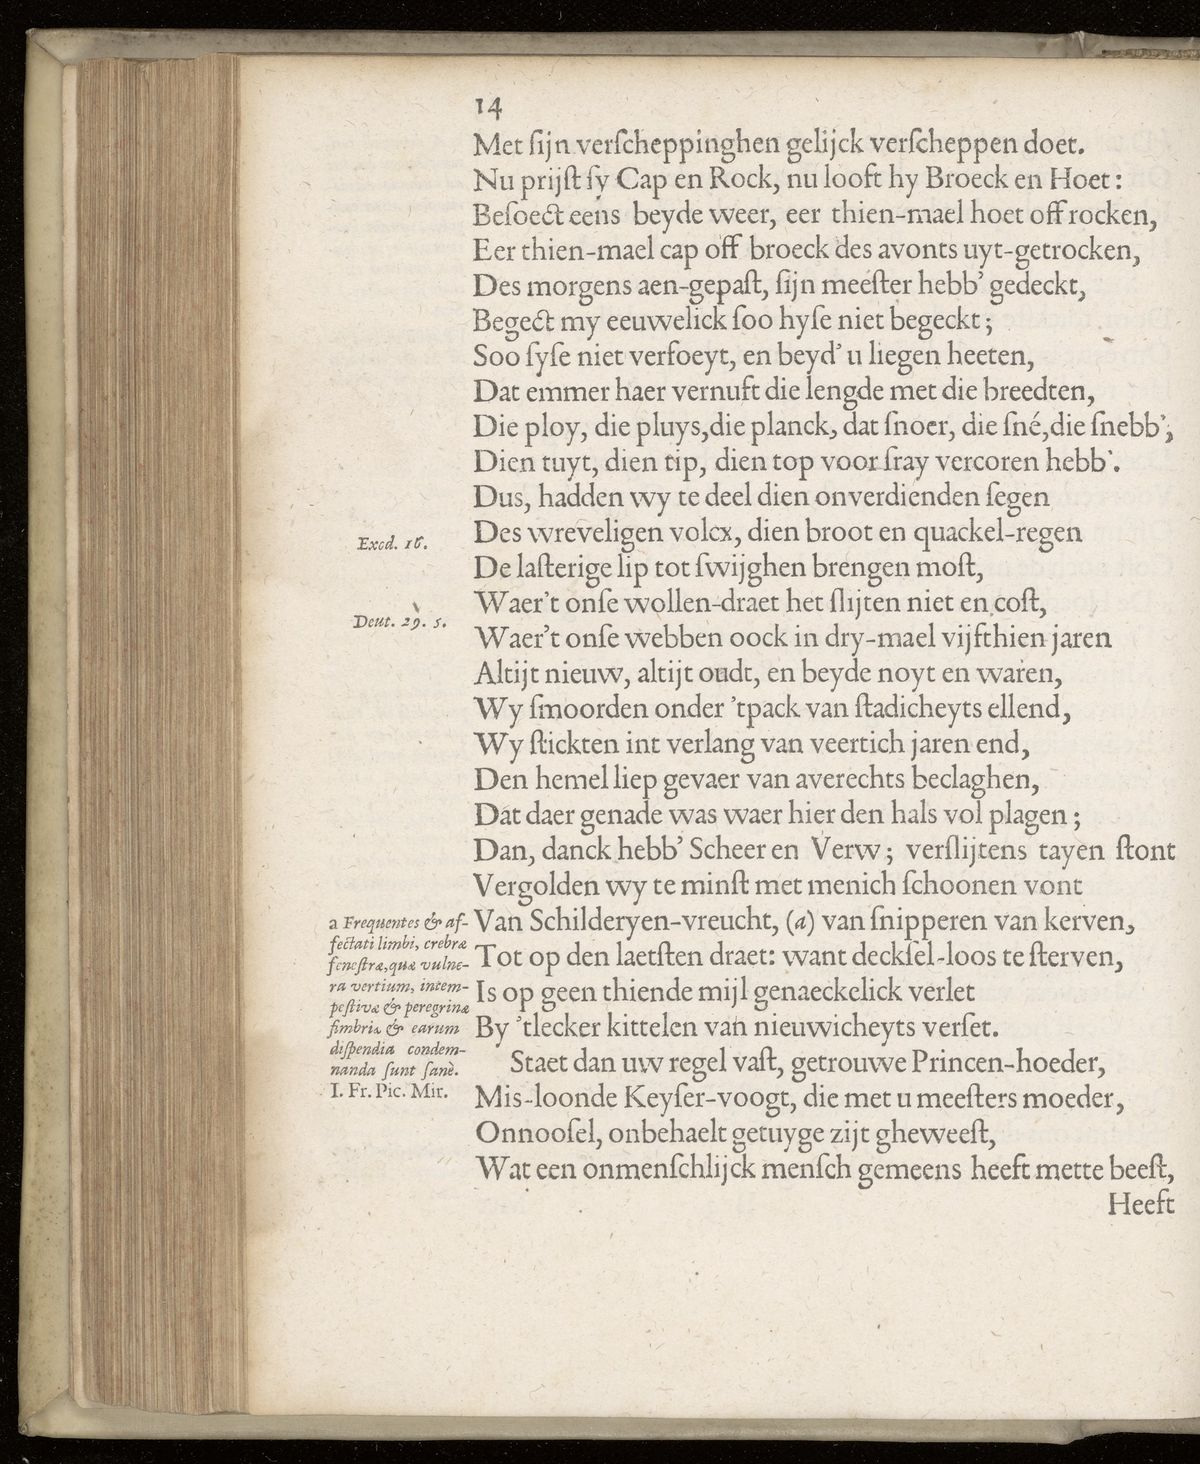 14
Met ſijn verſcheppinghen gelijck verſcheppen doet.
Nu prijſt ſy Cap en Rock, nu looft hy Broeck en Hoet:
Beſoect eens beyde weer, eer thien-mael hoet off rocken,
Eer thien-mael cap off broeck des avonts uyt-getrocken,
Des morgens aen-gepaſt, ſijn meeſter hebb’ gedeckt,
Begect my eeuwelick ſoo hyſe niet begeckt;
Soo ſyſe niet verfoeyt, en beyd’ u liegen heeten,
Dat emmer haer vernuft die lengde met die breedten,
Die ploy, die pluys, die planck, dat ſnoer, die ſné, die ſnebb’,
Dien tuyt, dien tip, dien top voor fray vercoren hebb’.
Dus, hadden wy te deel dien onverdienden ſegen
Exod. 16. Des wreveligen volcx, dien broot en quackel-regen
De laſterige lip tot ſwijghen brengen moſt,
Waer’t onſe wollen-draet het ſlijten niet en coſt,
Deut. 29. 5. Waer’t onſe webben oock in dry-mael vijfthien jaren
Altijt nieuw, altijt oudt, en beyde noyt en waren,
Wy ſmoorden onder ’tpack van ſtadicheyts ellend,
Wy ſtickten int verlang van veertich jaren end,
Den hemel liep gevaer van averechts beclaghen,
Dat daer genade was waer hier den hals vol plagen;
Dan, danck hebb’ Scheer en Verw; verſlijtens tayen ſtont
Vergolden wy te minſt met menich ſchoonen vont
Van Schilderyen-vreucht, (a) van ſnipperen van kerven,
Tot op den laetſten draet: want deckſel-loos te ſterven,
Is op geen thiende mijl genaeckelick verlet
By ’tlecker kittelen van nieuwicheyts verſet.
Staet dan uw regel vaſt, getrouwe Princen-hoeder,
Mis-loonde Keyſer-voogt, die met u meeſters moeder,
Onnooſel, onbehaelt getuyge zijt gheweeſt,
Wat een onmenſchlijck menſch gemeens heeft mette beeſt,
Heeft
a Frequentes & af-
fectati limbi, crebræ
feneſtræ, quæ vulne-
ra vertium, intem-
peſtivæ & peregrinæ
fimbriæ & earum
diſpendia condem-
nanda ſunt ſanè.
I. Fr. Pic. Mir.